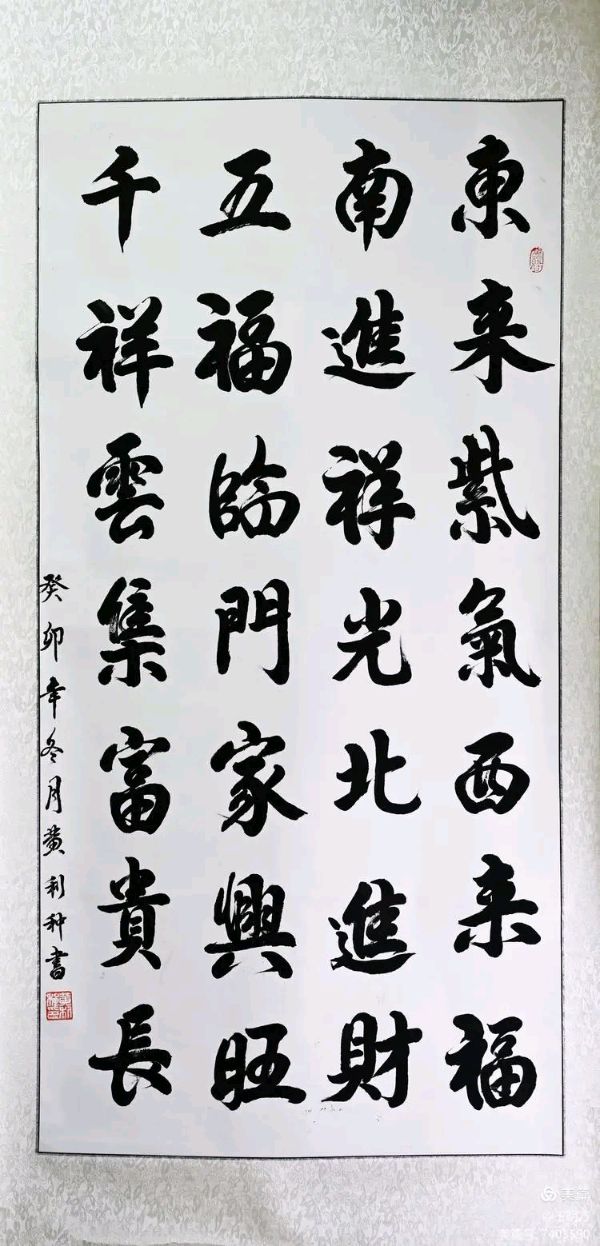 東来紫氣西来福
南進祥光北進財
五福臨門家興旺
千祥雲集富貴長
癸卯年冬月黄利种書
美篇